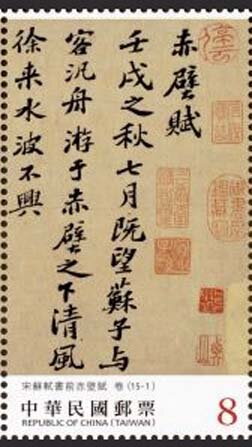 赤壁賦
壬戌之秋七月既望蘇子與
客汎舟游于赤壁之下清風
徐来水波不興
宋蘇軾書前赤壁賦 卷 (15-1)
中華民國郵票
REPUBLIC OF CHINA (TAIWAN)
8